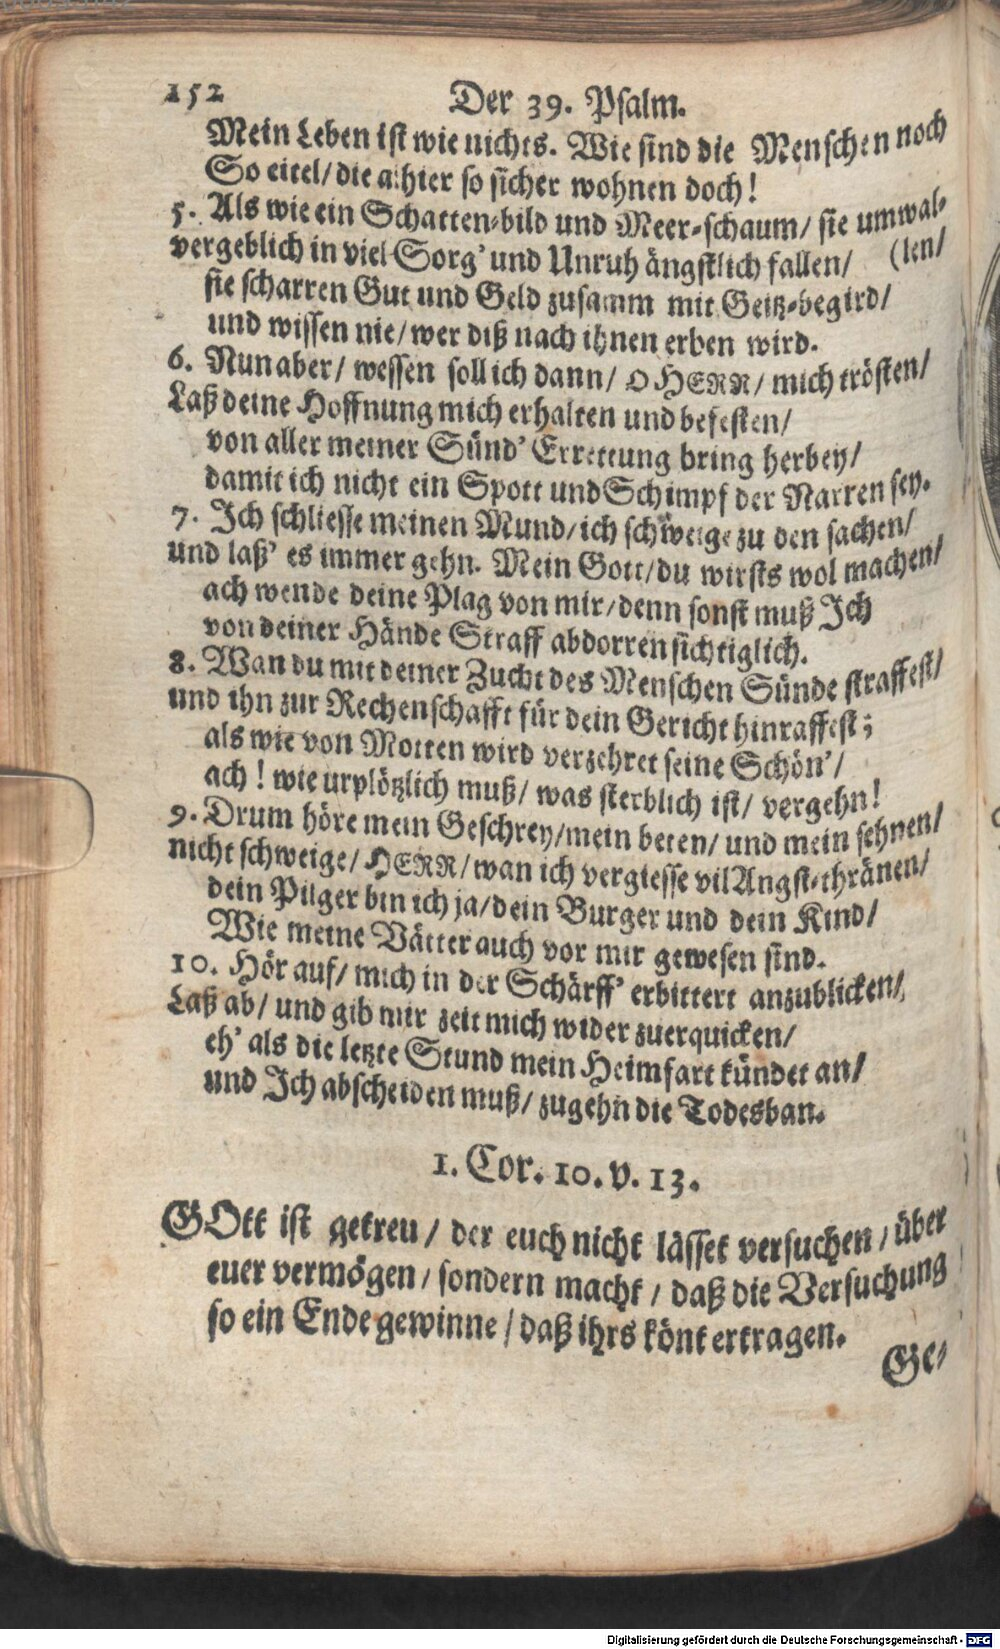 152 Der 39. Psalm.
Mein Leben ist wie nichts. Wie sind die Menschen noch
So eitel/ die alhier so sicher wohnen doch!
5. Als wie ein Schatten-bild und Meer-schaum/ sie umwal-
vergeblich in viel Sorg' und Unruh ängstlich fallen/ (len/
sie scharren Gut und Geld zusamm mit Geitz-begird/
und wissen nie/ wer diß nach ihnen erben wird.
6. Nun aber/ wessen soll ich dann/ O HERR/ mich trösten/
Laß deine Hoffnung mich erhalten und befesten/
von aller meiner Sünd' Errettung bring herbey/
damit ich nicht ein Spott und Schimpf der Narren sey.
7. Ich schliesse meinen Mund/ ich schweige zu den sachen/
und laß' es immer gehn. Mein Gott/ du wirsts wol machen/
ach wende deine Plag von mir/ denn sonst muß Ich
von deiner Hände Straff abdorren sichtiglich.
8. Wan du mit deiner Zucht des Menschen Sünde straffest/
und ihn zur Rechenschafft für dein Gericht hinraffest;
als wie von Motten wird verzehret seine Schön'/
ach! wie urplötzlich muß/ was sterblich ist/ vergehn!
9. Drum höre mein Geschrey/ mein beten/ und mein sehnen/
nicht schweige/ HERR/ wan ich vergiesse vil Angst-thränen/
dein Pilger bin ich ja/ dein Burger und dein Kind/
Wie meine Vätter auch vor mir gewesen sind.
10. Hör auf/ mich in der Schärff' erbittert anzublicken/
Laß ab/ und gib mir zeit mich wider zuerquicken/
eh' als die letzte Stund mein Heimfart kündet an/
und Ich abscheiden muß/ zugehn die Todesban.
1. Cor. 10. v. 13.
GOtt ist getreu/ der euch nicht lässet versuchen/ über
euer vermögen/ sondern macht/ daß die Versuchung
so ein Ende gewinne/ daß ihrs könt ertragen.
Ge-
Digitalisierung gefördert durch die Deutsche Forschungsgemeinschaft - DFG